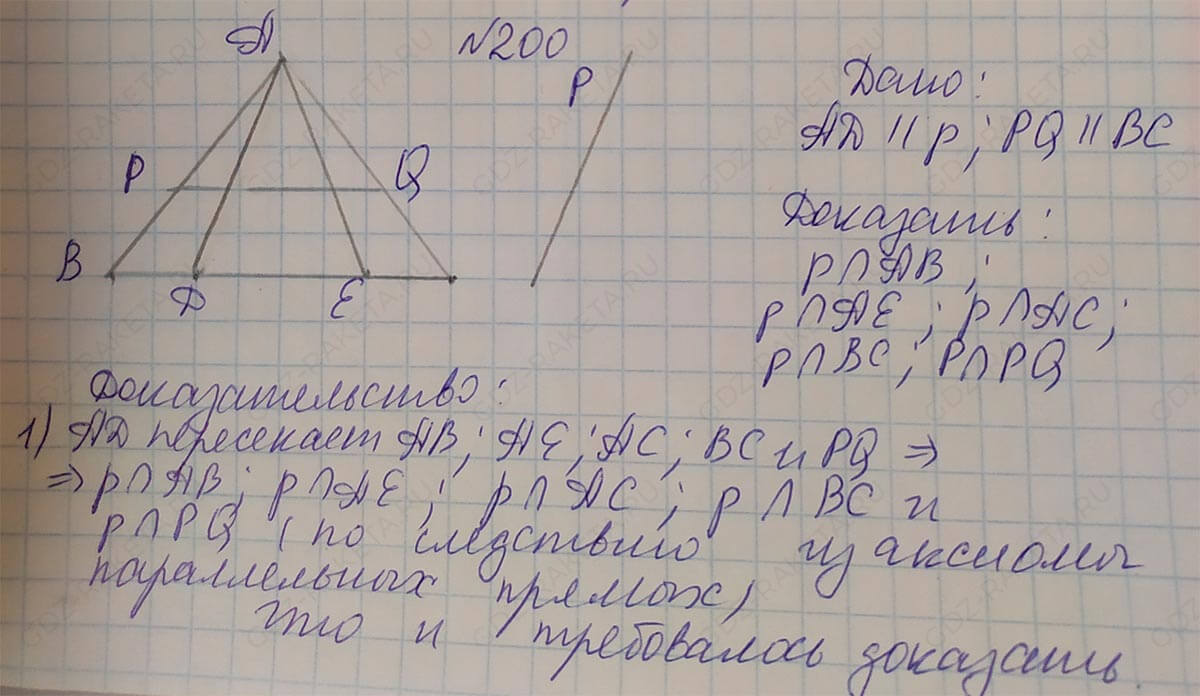 №200
A
P
Q
B
D
E
p
Дано:
AD || p; PQ || BC
Доказать:
p∩AB;
p∩AE; p∩AC;
p∩BC; P∩PQ
Доказательство:
1) AD пересекает AB; AE; AC; BC и PQ ⇒
⇒ p∩AB; p∩AE; p∩AC; p∩BC и
p∩PQ (по следствию из аксиомы
параллельных прямых)
Что и требовалось доказать.
GDZ-RAKETA.RU